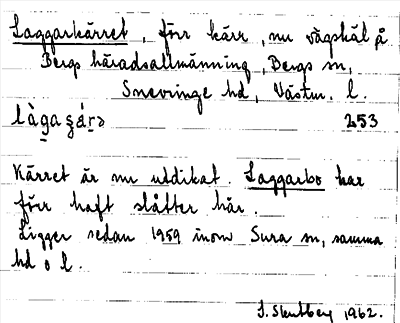 Laggarkärret, förr kärr, nu vägskäl på
Bergs häradsallmänning, Bergs sn,
Snevringe hd, Västm. l.
làgaʂárə 253
Kärret är nu utdikat. Laggarbo har
förr haft slåtter här.
Ligger sedan 1959 inom Sura sn, samma
hd o l.
1962.